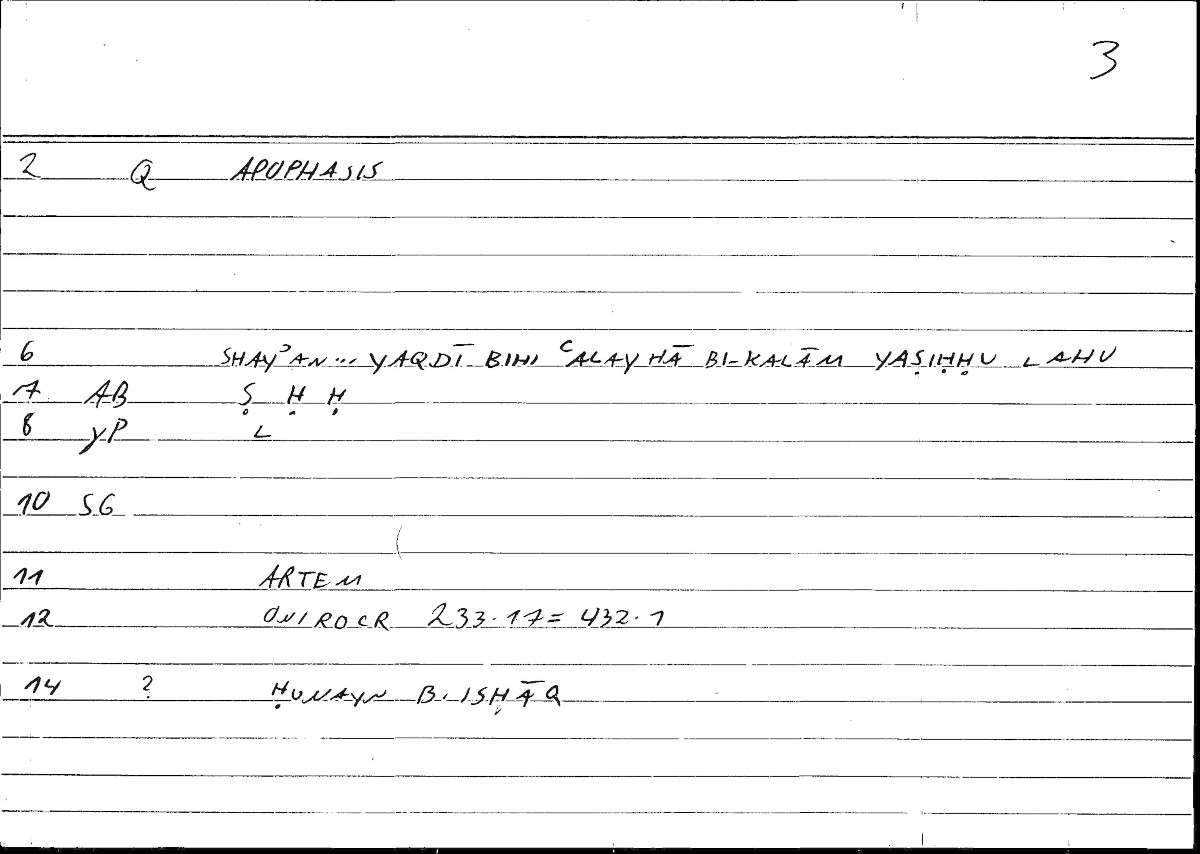 3
2 Q APOPHASIS
6 SHAYʾAN... YAQDĪ BIHI ʿALAYHĀ BI-KALĀM YAṢIḤḤU LAHU
7 AB Ṣ Ḥ Ḥ
8 YP L
10 SG
11 ARTEM
12 ONIROCR 233.17=432.1
14 ? ḤUNAYN B. ISḤĀQ